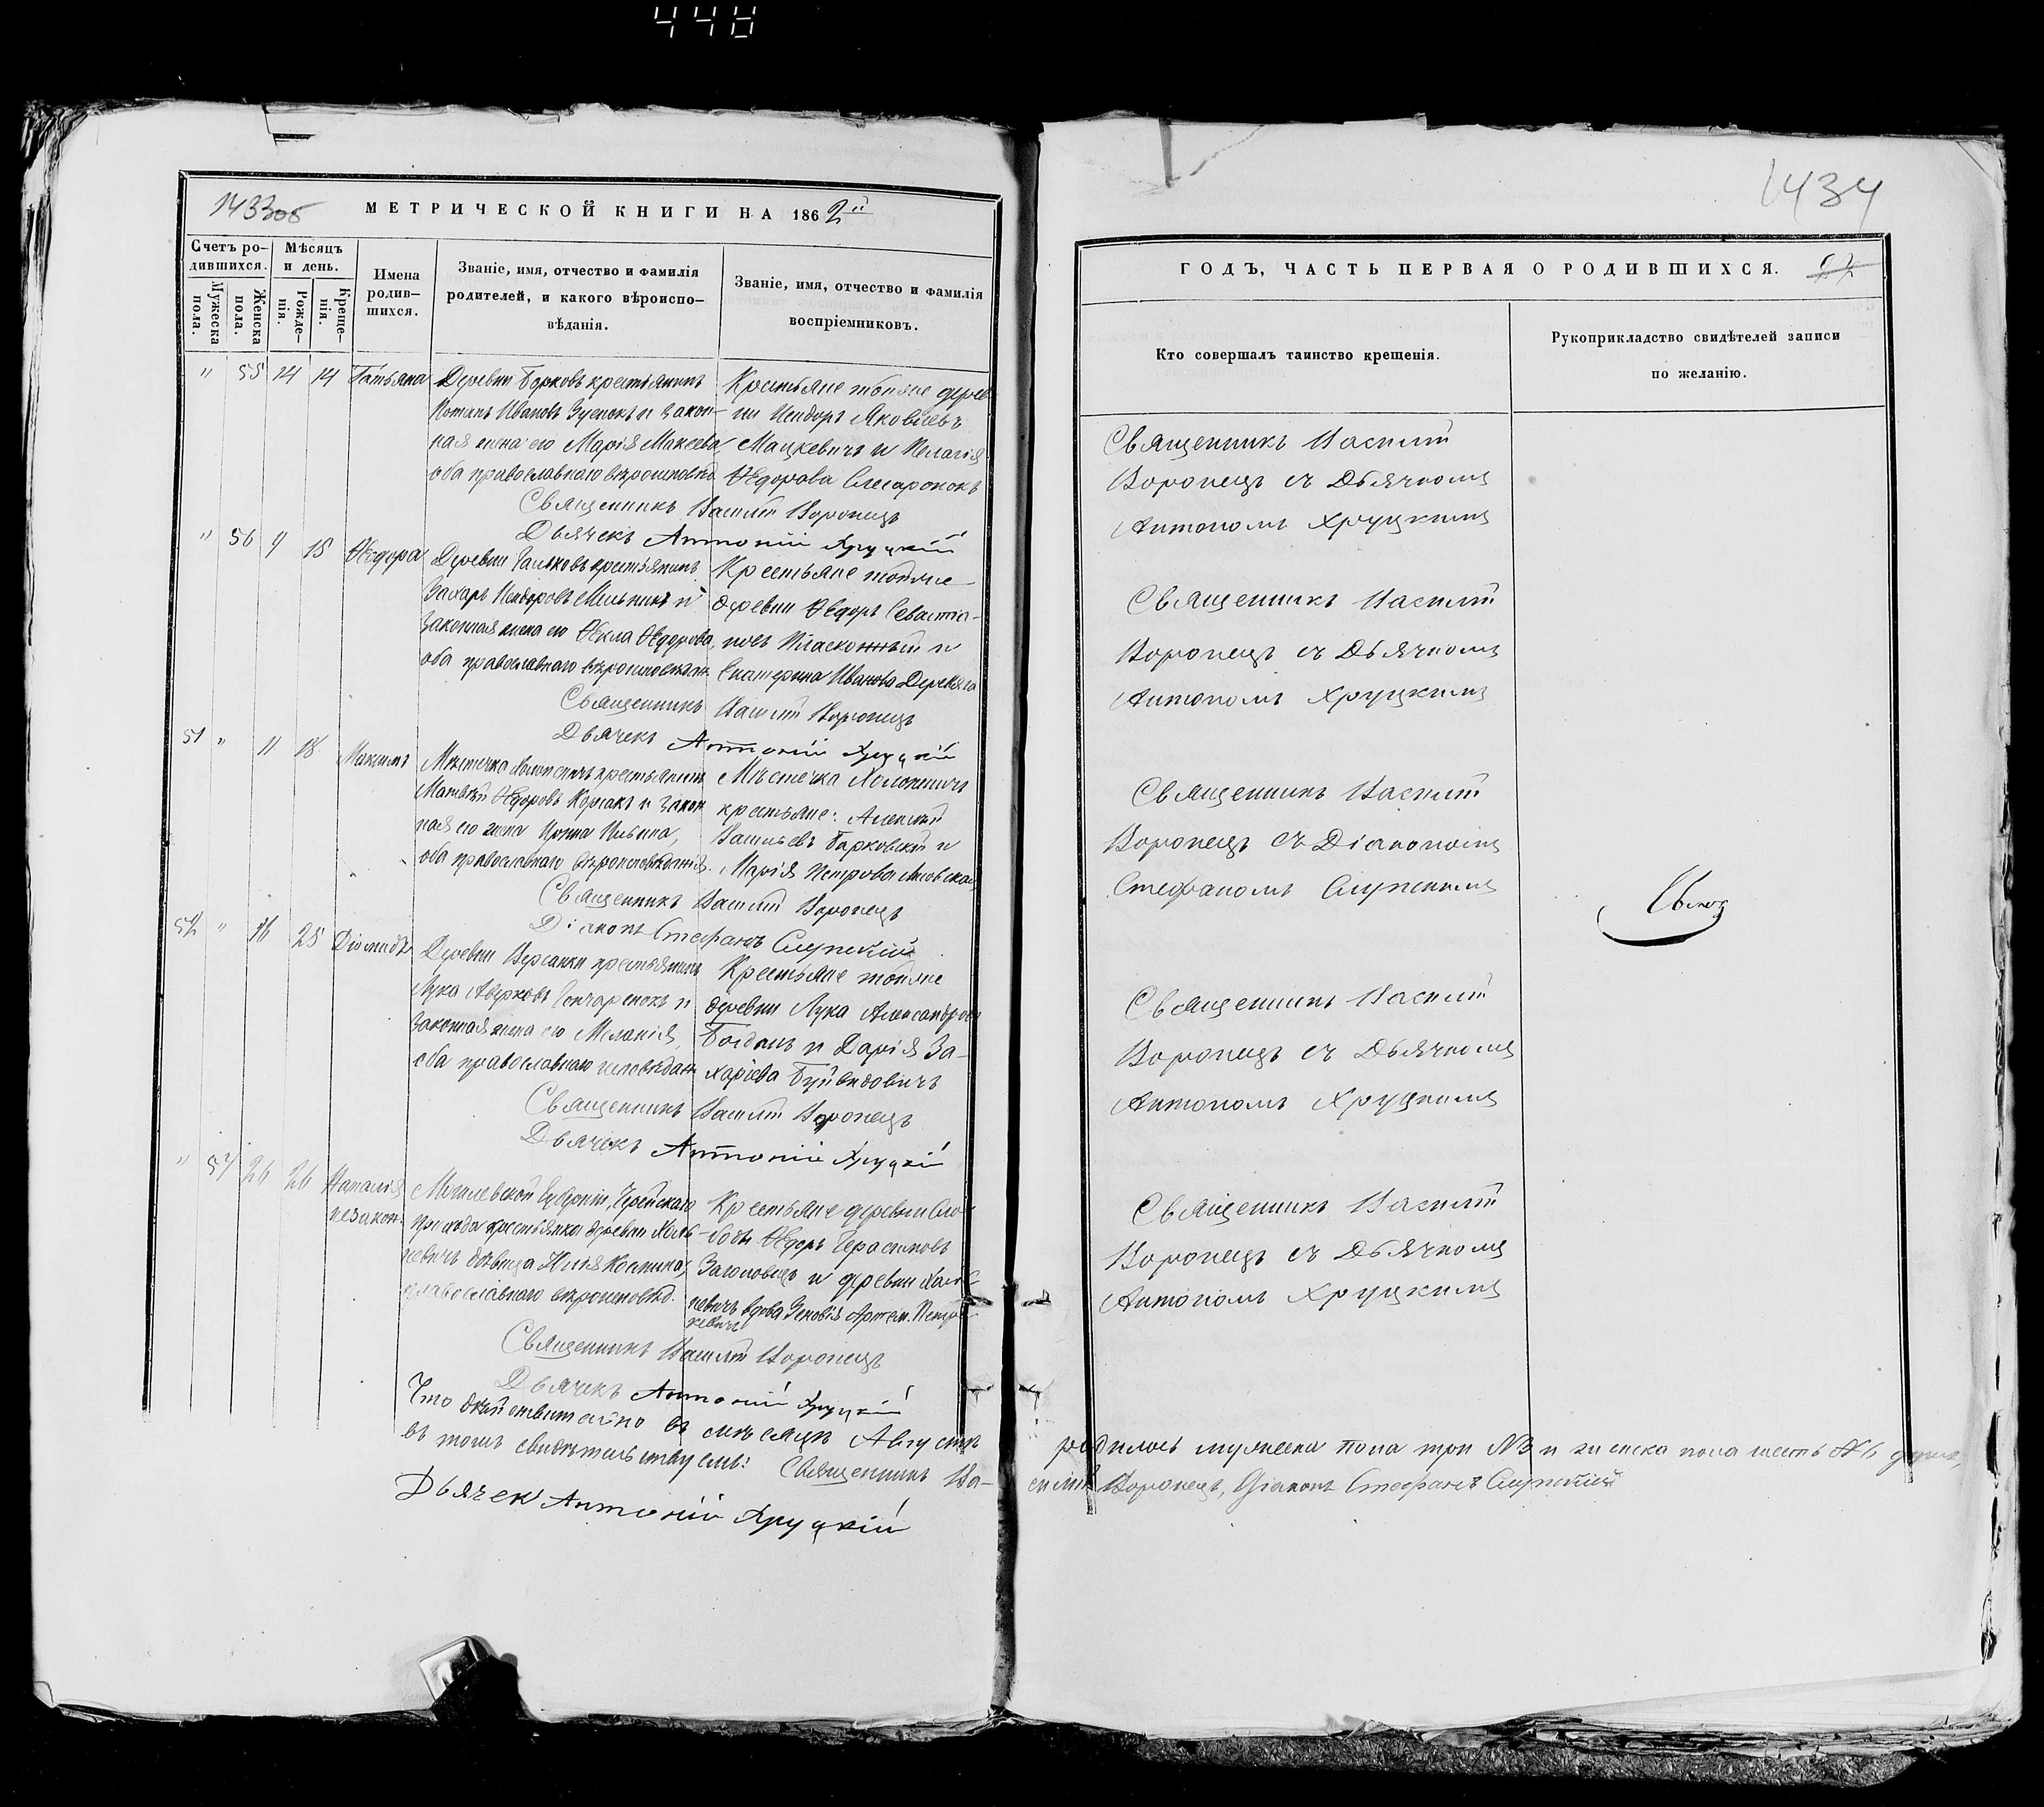 448
1433об
МЕТРИЧЕСКОЙ КНИГИ НА 1862й
Счетъ ро-
дившихся.
Мужеска пола.
Женска пола.
Мѣсяцъ
и день.
Рожде-
нія.
Креще-
нія.
Имена
родив-
шихся.
Званіе, имя, отчество и фамилія
родителей, и какого вѣроиспо-
вѣданія.
Званіе, имя, отчество и фамилія
воспріемниковъ.
" 55 14 14 Татьяна
Деревни Борковъ крестьянинъ
Ивановъ и закон-
ная жена его Марія Мокеева,
оба православнаго вѣроисповѣд.
Крестьяне тойже дерев
ни Исидоръ Яковлевъ
Мацкевичъ и Пелагія
Ѳедорова Слесаронокъ
Священникъ Василій Воронецъ
Дьячекъ Антоній Хруцкій
" 56 9 15 Ѳедора
Деревни крестьянинъ
Захаръ Исидоровъ Мельникъ и
законная жена его Ѳекла Ѳедорова,
оба православнаго вѣроисповѣдан.
Крестьяне тойже
деревни Ѳедоръ Севастіа-
новъ и
Екатерина Иванова
Священникъ Василій Воронецъ
Дьячекъ Антоній Хруцкій
51 " 11 18 Максимъ
Мѣстечка крестьянинъ
Матвѣй Ѳедоровъ и закон
ная его жена Ирина Ильина,
оба православнаго вѣроисповѣданія.
Мѣстечка Холопеничъ
крестьяне: Алексѣй
Васильевъ Барковскій и
Марія Петрова
Священникъ Василій Воронецъ
Діаконъ Стефанъ Слупскій
52 " 16 25 Діомидъ
Деревни крестьянинъ
Лука Аверковъ Гончаренокъ и
законная жена его Меланія,
оба православнаго исповѣдан.
Крестьяне тойже
деревни Лука Александровъ
Богданъ и Дарія За-
харіева Буйвидовичъ
Священникъ Василій Воронецъ
Дьячекъ Антоній Хруцкій
" 57 26 26 Наталія
незакон.
Могилевской Губерніи, Черейскаго
прихода крестьянка деревни
дѣвица Костина,
православнаго вѣроисповѣд.
Крестьяне деревни Сло-
боды Ѳедоръ Герасимовъ
и деревни
вдова Зеновія Артем. Петр
кевичъ
Священникъ Василій Воронецъ
Дьячекъ Антоній Хруцкій
Что дѣйствительно въ мѣсяцѣ Августѣ
въ томъ свидѣтельствуемъ: Священникъ Ва-
Дьячек Антоній Хруцкій
1434
ГОДЪ, ЧАСТЬ ПЕРВАЯ О РОДИВШИХСЯ.
Кто совершалъ таинство крещенія.
Рукоприкладство свидѣтелей записи
по желанію.
Священникъ Василій
Воронецъ съ Дьячкомъ
Антономъ Хруцкимъ
Священникъ Василій
Воронецъ съ Дьячкомъ
Антономъ Хруцкимъ
Священникъ Василій
Воронецъ съ Діакономъ
Стефаномъ Слупскимъ
Священникъ Василій
Воронецъ съ Дьячкомъ
Антономъ Хруцкимъ
Священникъ Василій
Воронецъ съ Дьячкомъ
Антономъ Хруцкимъ
родилось мужеска пола три №3 и женска пола шесть №6 душъ,
силій Воронецъ, Діаконъ Стефанъ Слупскій